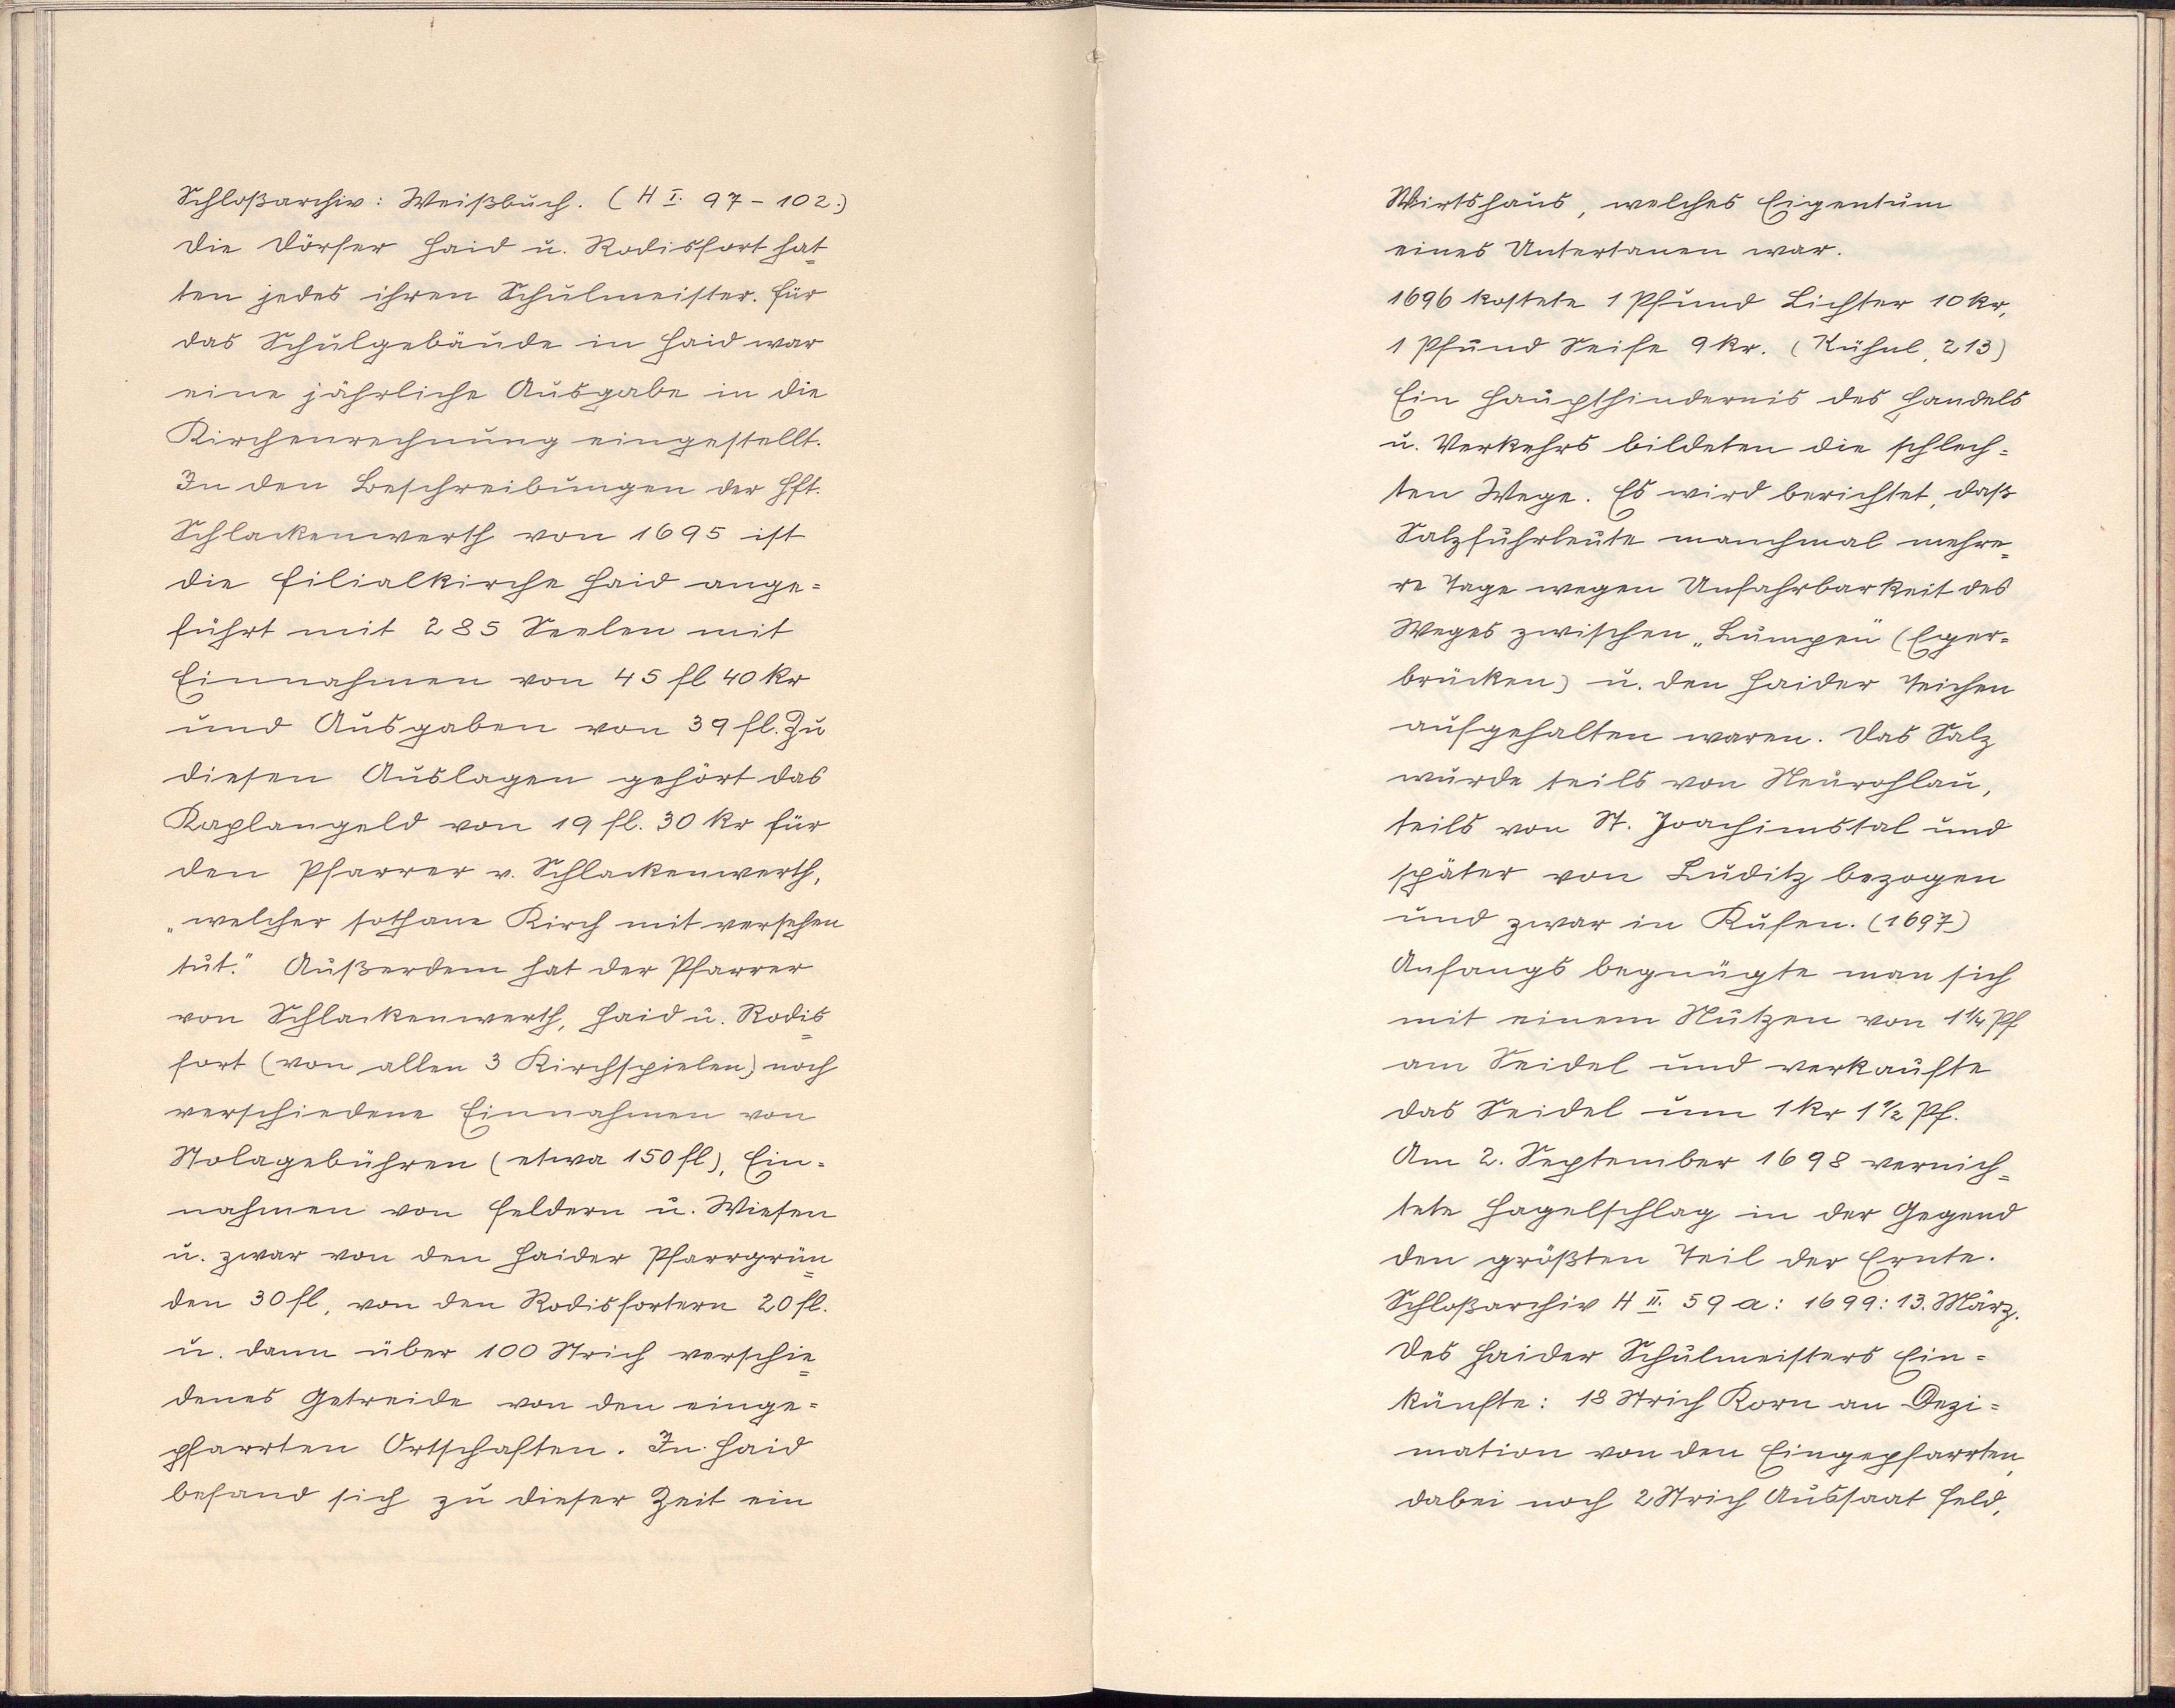 Schloßarchiv: Weißbuch. (H I. 97 - 102.)
Die Dörfer Haid u. Rodisfort hat=
ten jedes ihren Schulmeister. Für
das Schulgebäude in Haid war
eine jährliche Ausgabe in die
Kirchenrechnung eingestellt.
In den Beschreibungen der Hft.
Schlackenwerth von 1695 ist
die Filialkirche Haid ange=
führt mit 285 Seelen mit
Einnahmen von 45 fl 40 kr
und Ausgaben von 39 fl. Zu
diesen Auslagen gehört das
Kaplangeld von 19 fl. 30 kr für
den Pfarrer v. Schlackenwerth,
„welcher sothane Kirch mit versehen
tut." Außerdem hat der Pfarrer
von Schlackenwerth, Haid u. Rodis=
fort (von allen 3 Kirchspielen) noch
verschiedene Einnahmen von
Stolagebühren (etwa 150 fl), Ein=
nahmen von Feldern u. Wiesen
u. zwar von den Haider Pfarrgrün=
den 30 fl, von den Rodisfortern 20 fl.
u. dann über 100 Strich verschie=
denes Getreide von den einge=
pfarrten Ortschaften. In Haid
befand sich zu dieser Zeit ein
Wirtshaus, welches Eigentum
eines Untertanen war.
1696 kostete 1 Pfund Lichter 10 kr,
1 Pfund Seife 9 kr. (Kühnl, 213)
Ein Haupthindernis des Handels
u. Verkehrs bildeten die schlech=
ten Wege. Es wird berichtet, daß
Salzfuhrleute manchmal mehre=
re Tage wegen Unfahrbarkeit des
Weges zwischen „Lumpen" (Eger=
brücken) u. den Haider Teichen
aufgehalten waren. Das Salz
wurde teils von Neurohlau,
teils von St. Joachimstal und
später von Luditz bezogen
und zwar in Kufen. (1697)
Anfangs begnügte man sich
mit einem Nutzen von 1 1/4 Pf
am Seidel und verkaufte
das Seidel um 1 kr 1 1/2 Pf.
Am 2. September 1698 vernich=
tete Hagelschlag in der Gegend
den größten Teil der Ernte.
Schloßarchiv H II. 59 a: 1699: 13. März.
Des Haider Schulmeisters Ein=
künfte: 18 Strich Korn an Dezi=
mation von den Eingepfarrten,
dabei noch 2 Strich Aussaat Feld,